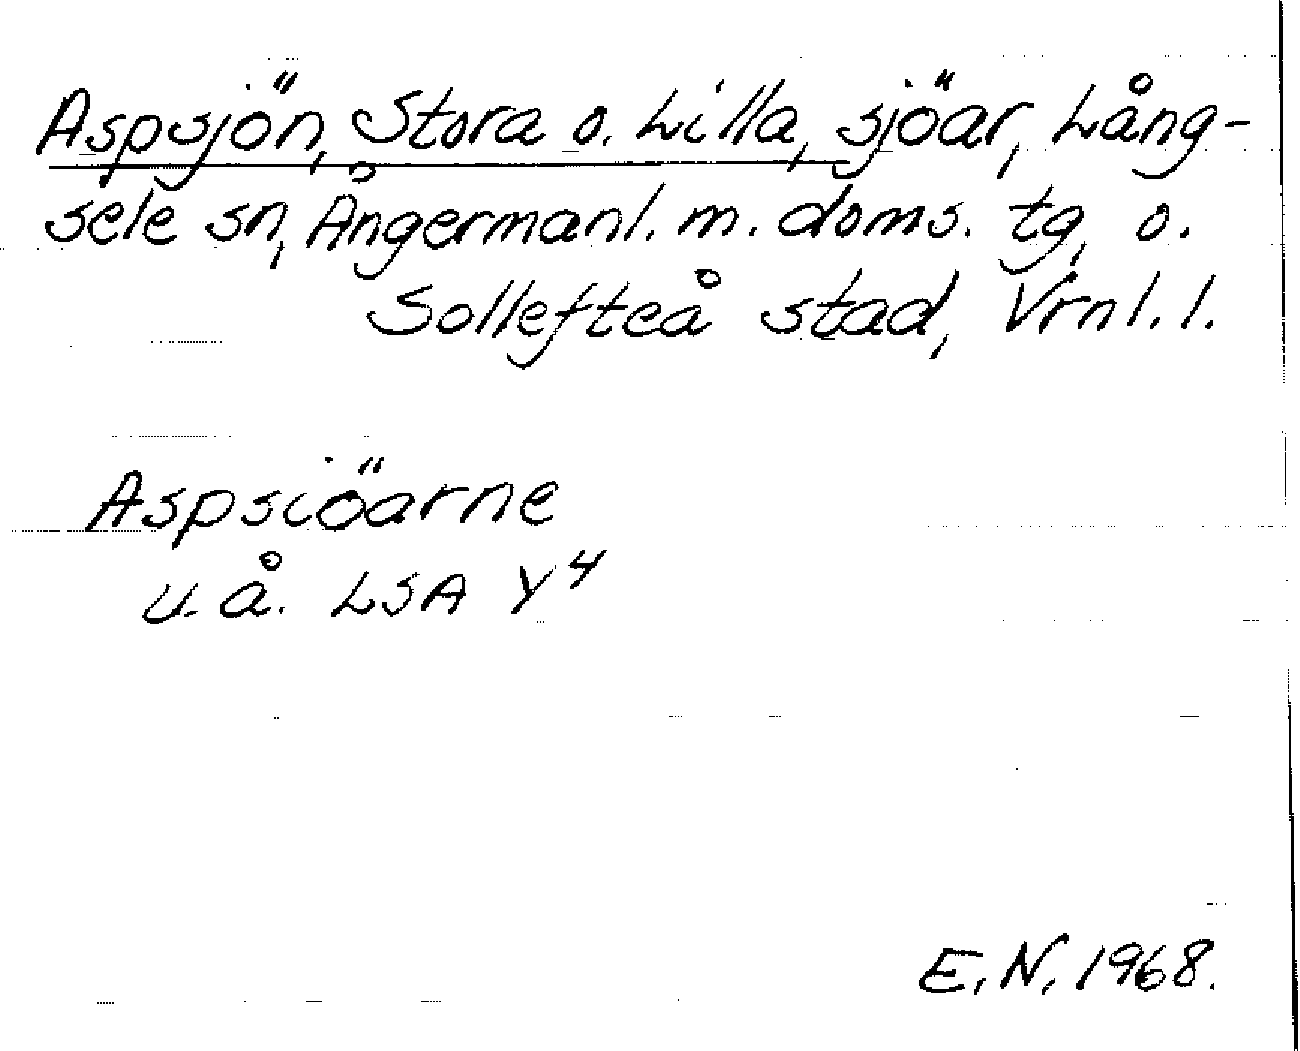 Aspsjön, Stora o. Lilla, sjöar, Lång-
sele sn, Ångermanl. m. doms. tg, o.
Sollefteå stad, Vrnl. l.
Aspsiöarne
u. å. LSA Y4
E.N. 1968.